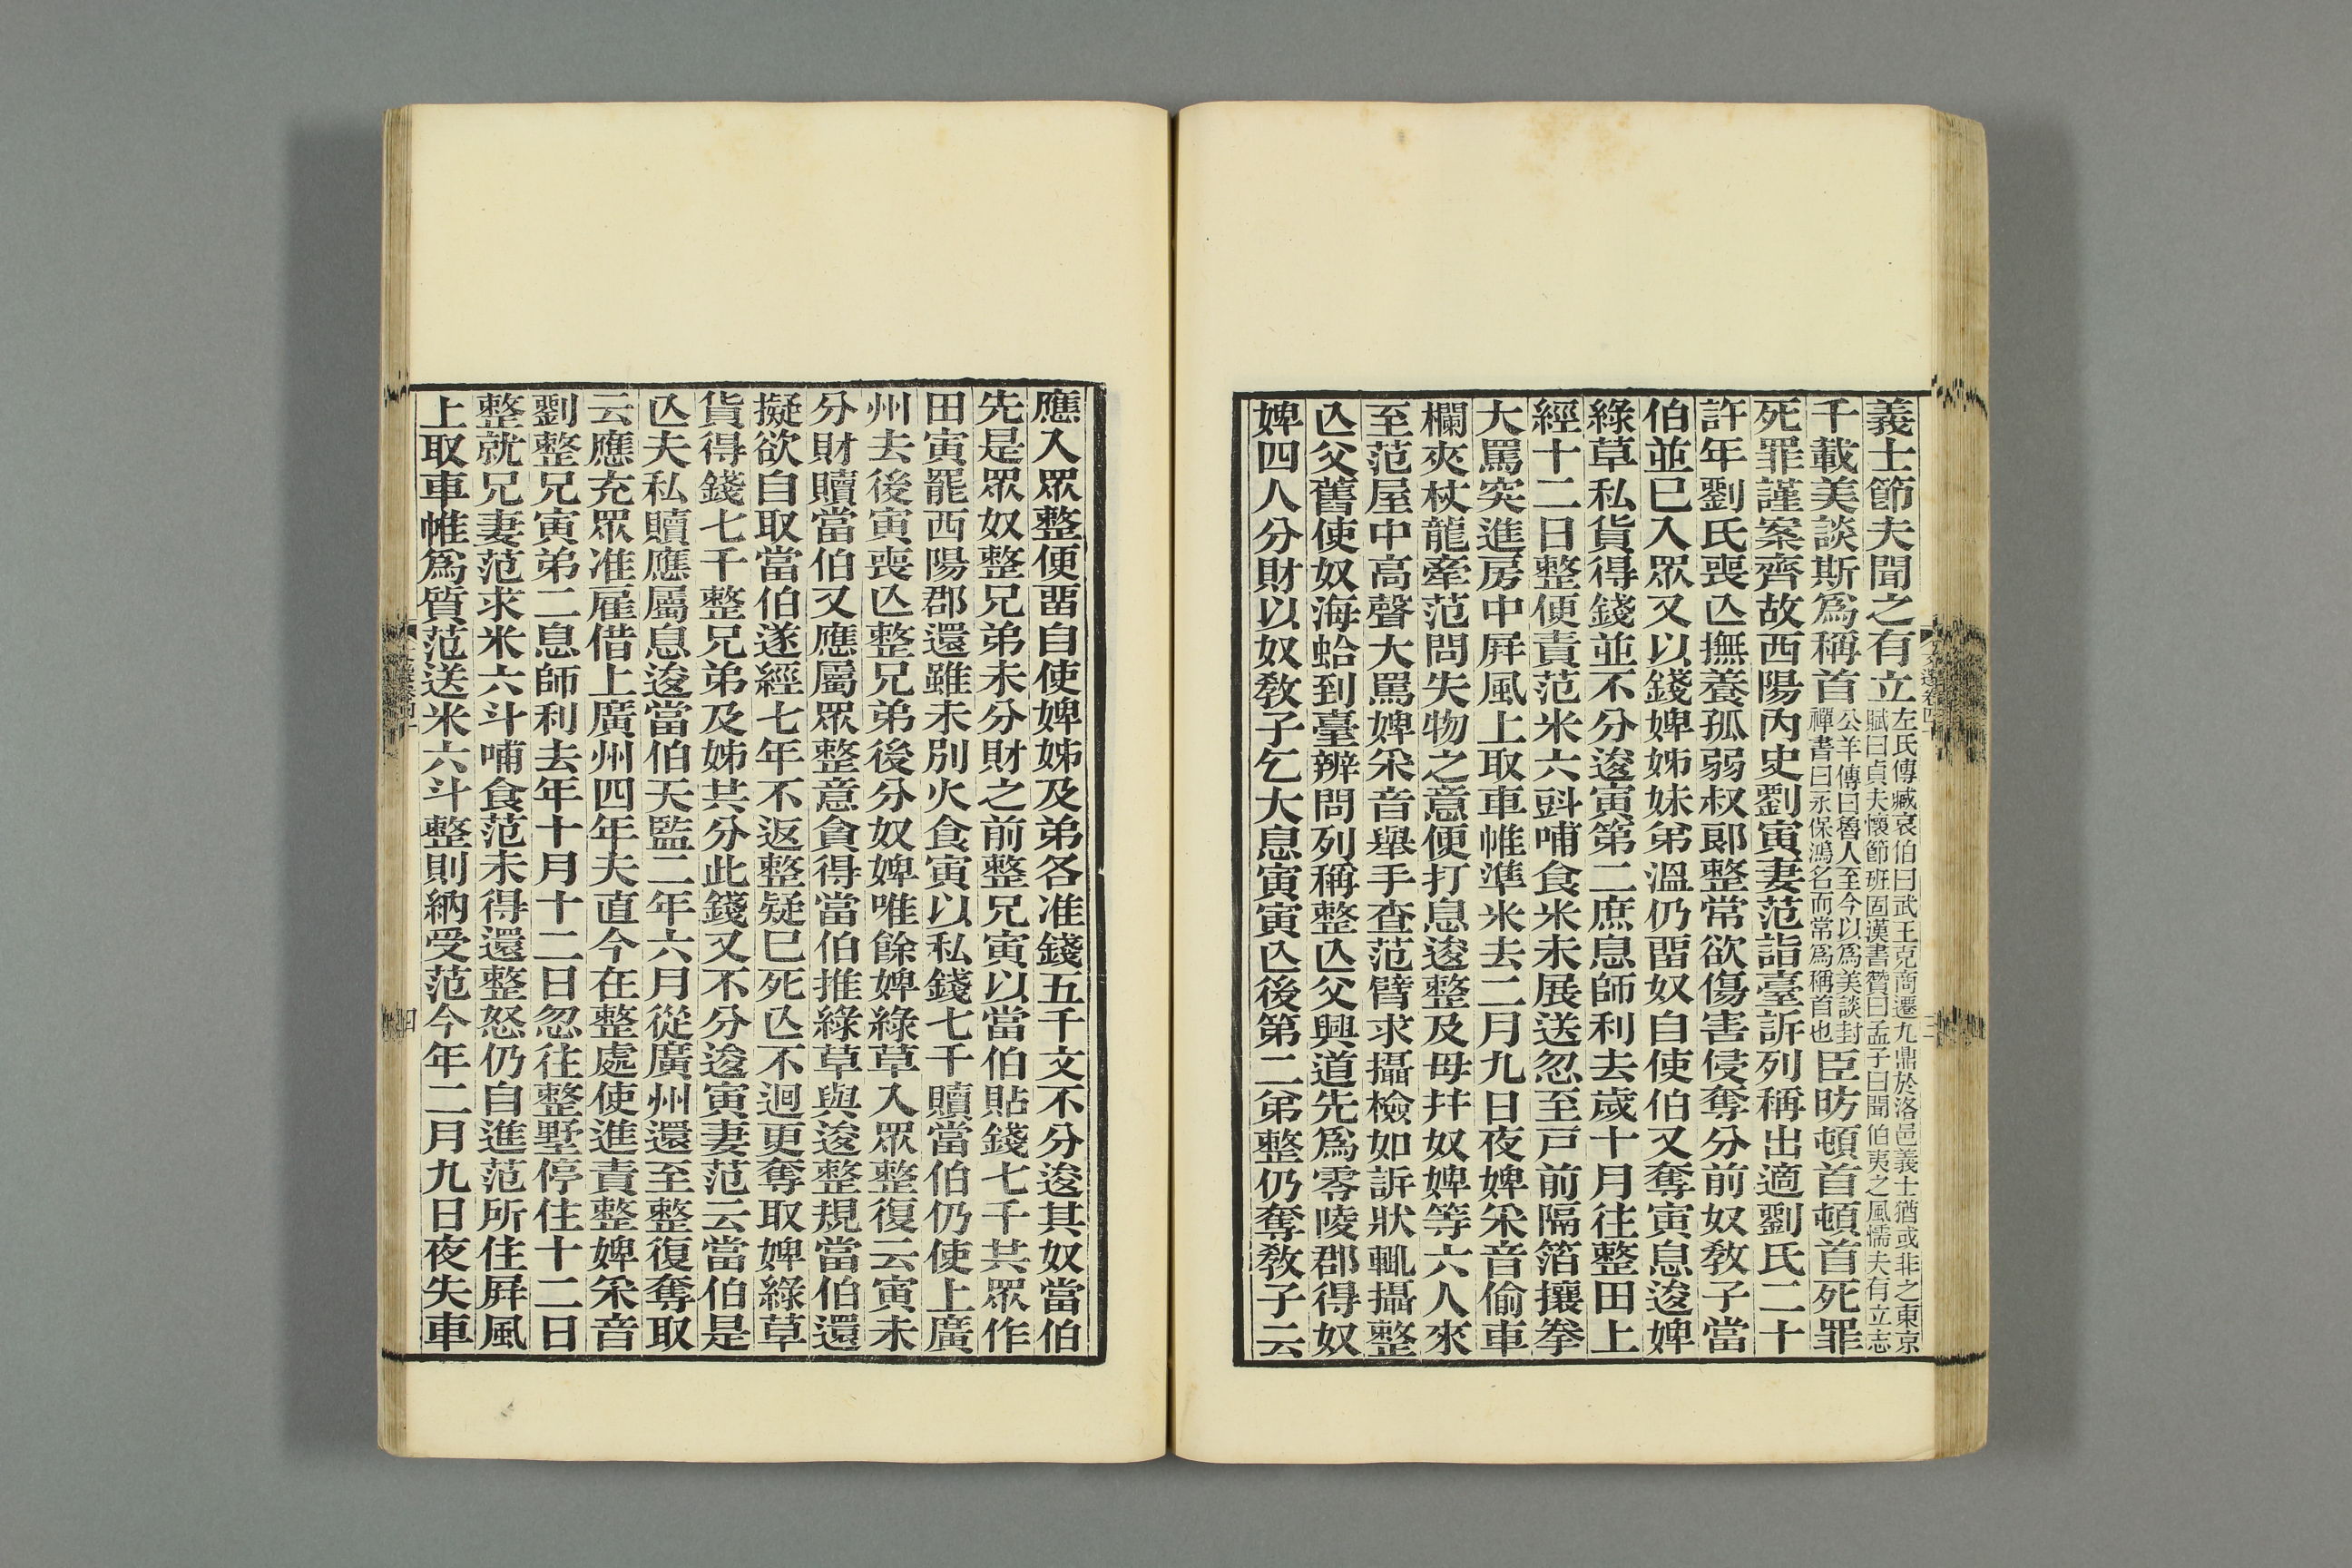 義士節夫聞之有立左氏傳臧哀伯曰武王克商遷九鼎於洛邑義士猶或非之東京賦曰貞夫懷節班固漢書贊曰孟子曰聞伯夷之風懦夫有立志
千載美談斯爲稱首公羊傳曰魯人至今以爲美談封禪書曰永保鴻名而常爲稱首也臣昉頓首頓首死罪
死罪謹案齊故西陽內史劉寅妻范詣臺訴列稱出適劉氏二十
許年劉氏喪亾撫養孤弱叔郎整常欲傷害侵奪分前奴教子當
伯並已入眾又以錢婢姊妹弟溫仍畱奴自使伯又奪寅息逡婢
綠草私貨得錢並不分逡寅第二庶息師利去歲十月往整田上
經十二日整便責范米六㪷哺食米未展送忽至戸前隔箔攘拳
大罵突進房中屏風上取車帷準米去二月九日夜婢采音偷車
欄夾杖龍牽范問失物之意便打息逡整及母并奴婢等六人來
至范屋中高聲大罵婢采音舉手查范臂求攝檢如訴狀輒攝整
亾父舊使奴海蛤到臺辨問列稱整亾父興道先爲零陵郡得奴
婢四人分財以奴教子乞大息寅寅亾後第二弟整仍奪教子云
應入眾整便畱自使婢姊及弟各准錢五千文不分逡其奴當伯
先是眾奴整兄弟未分財之前整兄寅以當伯貼錢七千共眾作
田寅罷西陽郡還雖未別火食寅以私錢七千贖當伯仍使上廣
州去後寅喪亾整兄弟後分奴婢唯餘婢綠草入眾整復云寅未
分財贖當伯又應屬眾整意貪得當伯推綠草與逡整規當伯還
擬欲自取當伯遂經七年不返整疑已死亾不迴更奪取婢綠草
貨得錢七千整兄弟及姊共分此錢又不分逡寅妻范云當伯是
亾夫私贖應屬息逡當伯天監二年六月從廣州還至整復奪取
云應充眾准雇借上廣州四年夫直今在整處使進責整婢采音
劉整兄寅弟二息師利去年十月十二日忽往整墅停住十二日
整就兄妻范求米六斗哺食范未得還整怒仍自進范所住屏風
上取車帷爲質范送米六斗整則納受范今年二月九日夜失車